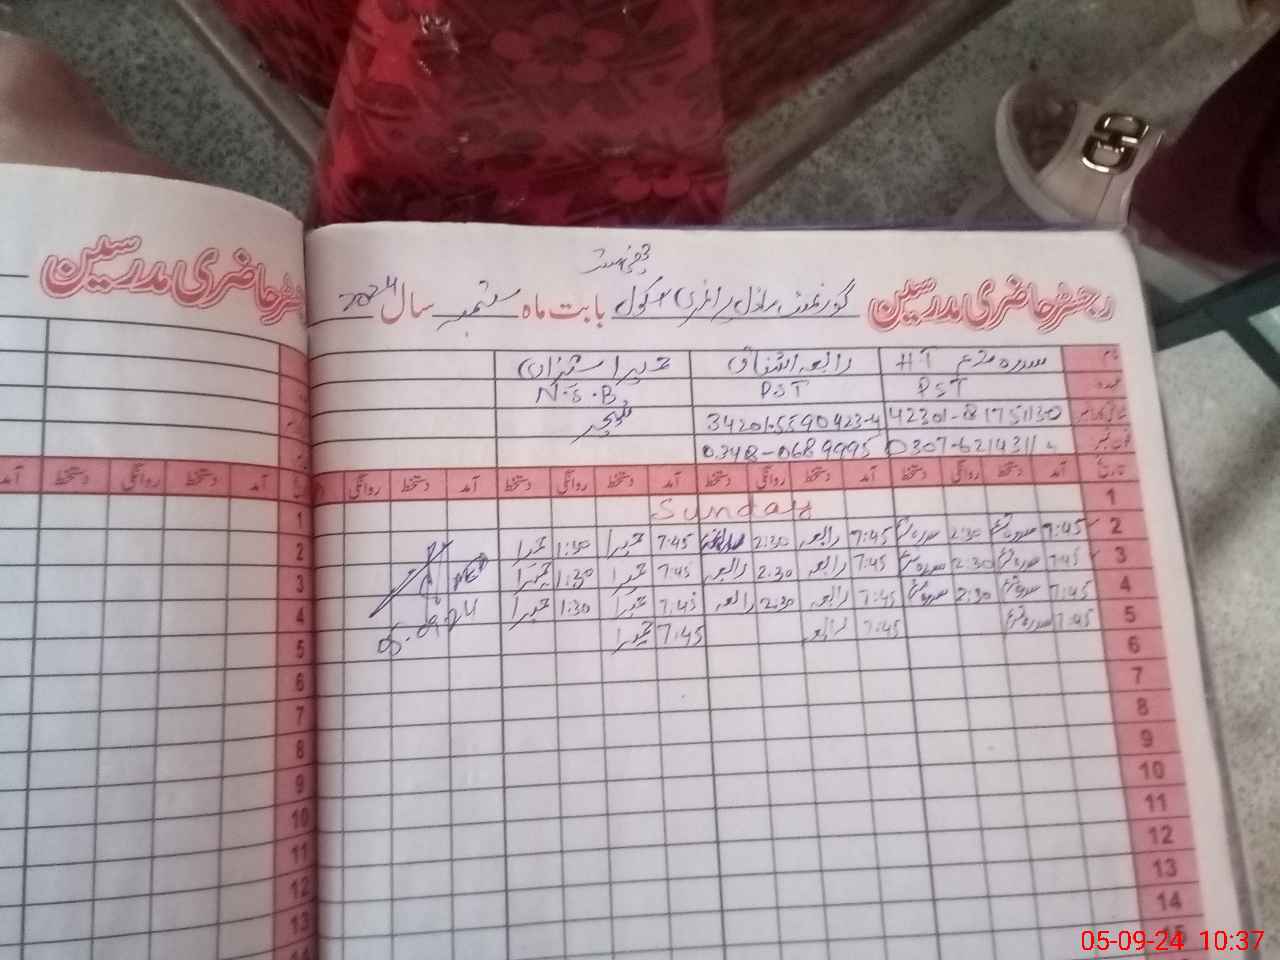 رجسٹر حاضری مدرسین
رجسٹر حاضری مدرسین گورنمنٹ ماڈل پرائمری سکول بابت ماہ ستمبر سال 2024
نام سدرہ HT رابعہ اشفاق حمیرا
عہدہ PST PST N.S.B
شناختی کارڈ نمبر 42301-8175130 ٹیچر
فون نمبر 0307-6214311 0348-0689995
تاریخ آمد دستخط روانگی دستخط آمد دستخط روانگی دستخط آمد دستخط روانگی دستخط آمد دستخط روانگی
1 Sunday
2 7:45 سدرہ 2:30 سدرہ 7:45 رابعہ 2:30 7:45 حمیرا 1:30 حمیرا
3 7:45 سدرہ 2:30 سدرہ 7:45 رابعہ 2:30 رابعہ 7:45 حمیرا 1:30 حمیرا
4 7:45 سدرہ 2:30 سدرہ 7:45 رابعہ 2:30 رابعہ 7:45 حمیرا 1:30 حمیرا
5 7:45 سدرہ 7:45 رابعہ 7:45 حمیرا
05-09-24
6
7
8
9
10
11
12
13
14
15
آمد دستخط روانگی دستخط آمد
1
2
3
4
5
6
7
8
9
10
11
12
13
14
05-09-24 10:37